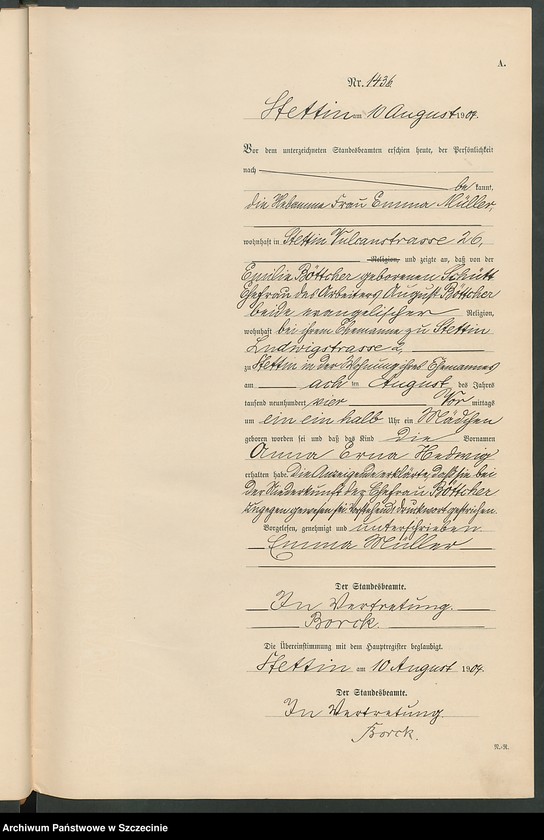 A.
Nr. 1436
Stettin am 10 August 1904.
Vor dem unterzeichneten Standesbeamten erschien heute, der Persönlichkeit
nach
be kannt,
die Hebamme Frau Emma Müller,
wohnhaft in Stettin Vulcanstrasse 26,
Religion, und zeigte an, daß von der
Emilie Böttcher geborenen Schütt
Ehefrau des Arbeiters August Böttcher
beide evangelischer Religion,
wohnhaft bei ihrem Ehemanne zu Stettin
Ludwigstrasse
zu Stettin in der Wohnung ihres Ehemannes
am acht ten August des Jahres
tausend neunhundert vier Vor mittags
um ein ein halb Uhr ein Mädchen
geboren worden sei und daß das Kind die Vornamen
Anna Erna Hedwig
erhalten habe. Die Anzeigende erklärte, daß sie bei
der Niederkunft der Ehefrau Böttcher
zugegen gewesen sei. Vorstehend Druckwort gestrichen.
Vorgelesen, genehmigt und unterschrieben
Emma Müller
Der Standesbeamte.
In Vertretung.
Borck.
Die Übereinstimmung mit dem Hauptregister beglaubigt.
Stettin am 10 August 1904.
Der Standesbeamte.
In Vertretung.
Borck.
N.-R.
Archiwum Państwowe w Szczecinie